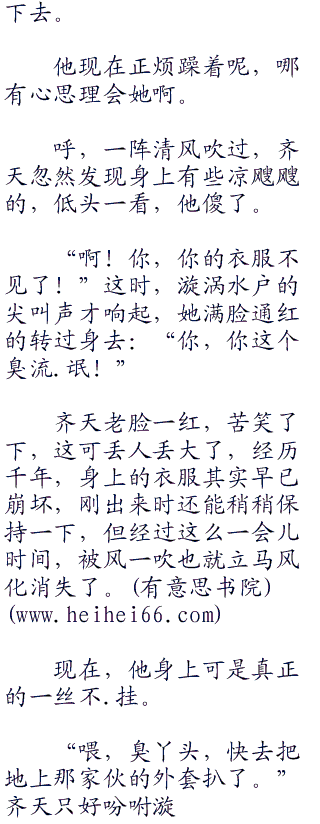 下去。
他现在正烦躁着呢，哪
有心思理会她啊。
呼，一阵清风吹过，齐
天忽然发现身上有些凉飕飕
的，低头一看，他傻了。
“啊！你，你的衣服不
见了！”这时，漩涡水户的
尖叫声才响起，她满脸通红
的转过身去：“你，你这个
臭流.氓！”
齐天老脸一红，苦笑了
下，这可丢人丢大了，经历
千年，身上的衣服其实早已
崩坏，刚出来时还能稍稍保
持一下，但经过这么一会儿
时间，被风一吹也就立马风
化消失了。(有意思书院)
(www.heihei66.com)
现在，他身上可是真正
的一丝不.挂。
“喂，臭丫头，快去把
地上那家伙的外套扒了。”
齐天只好吩咐漩